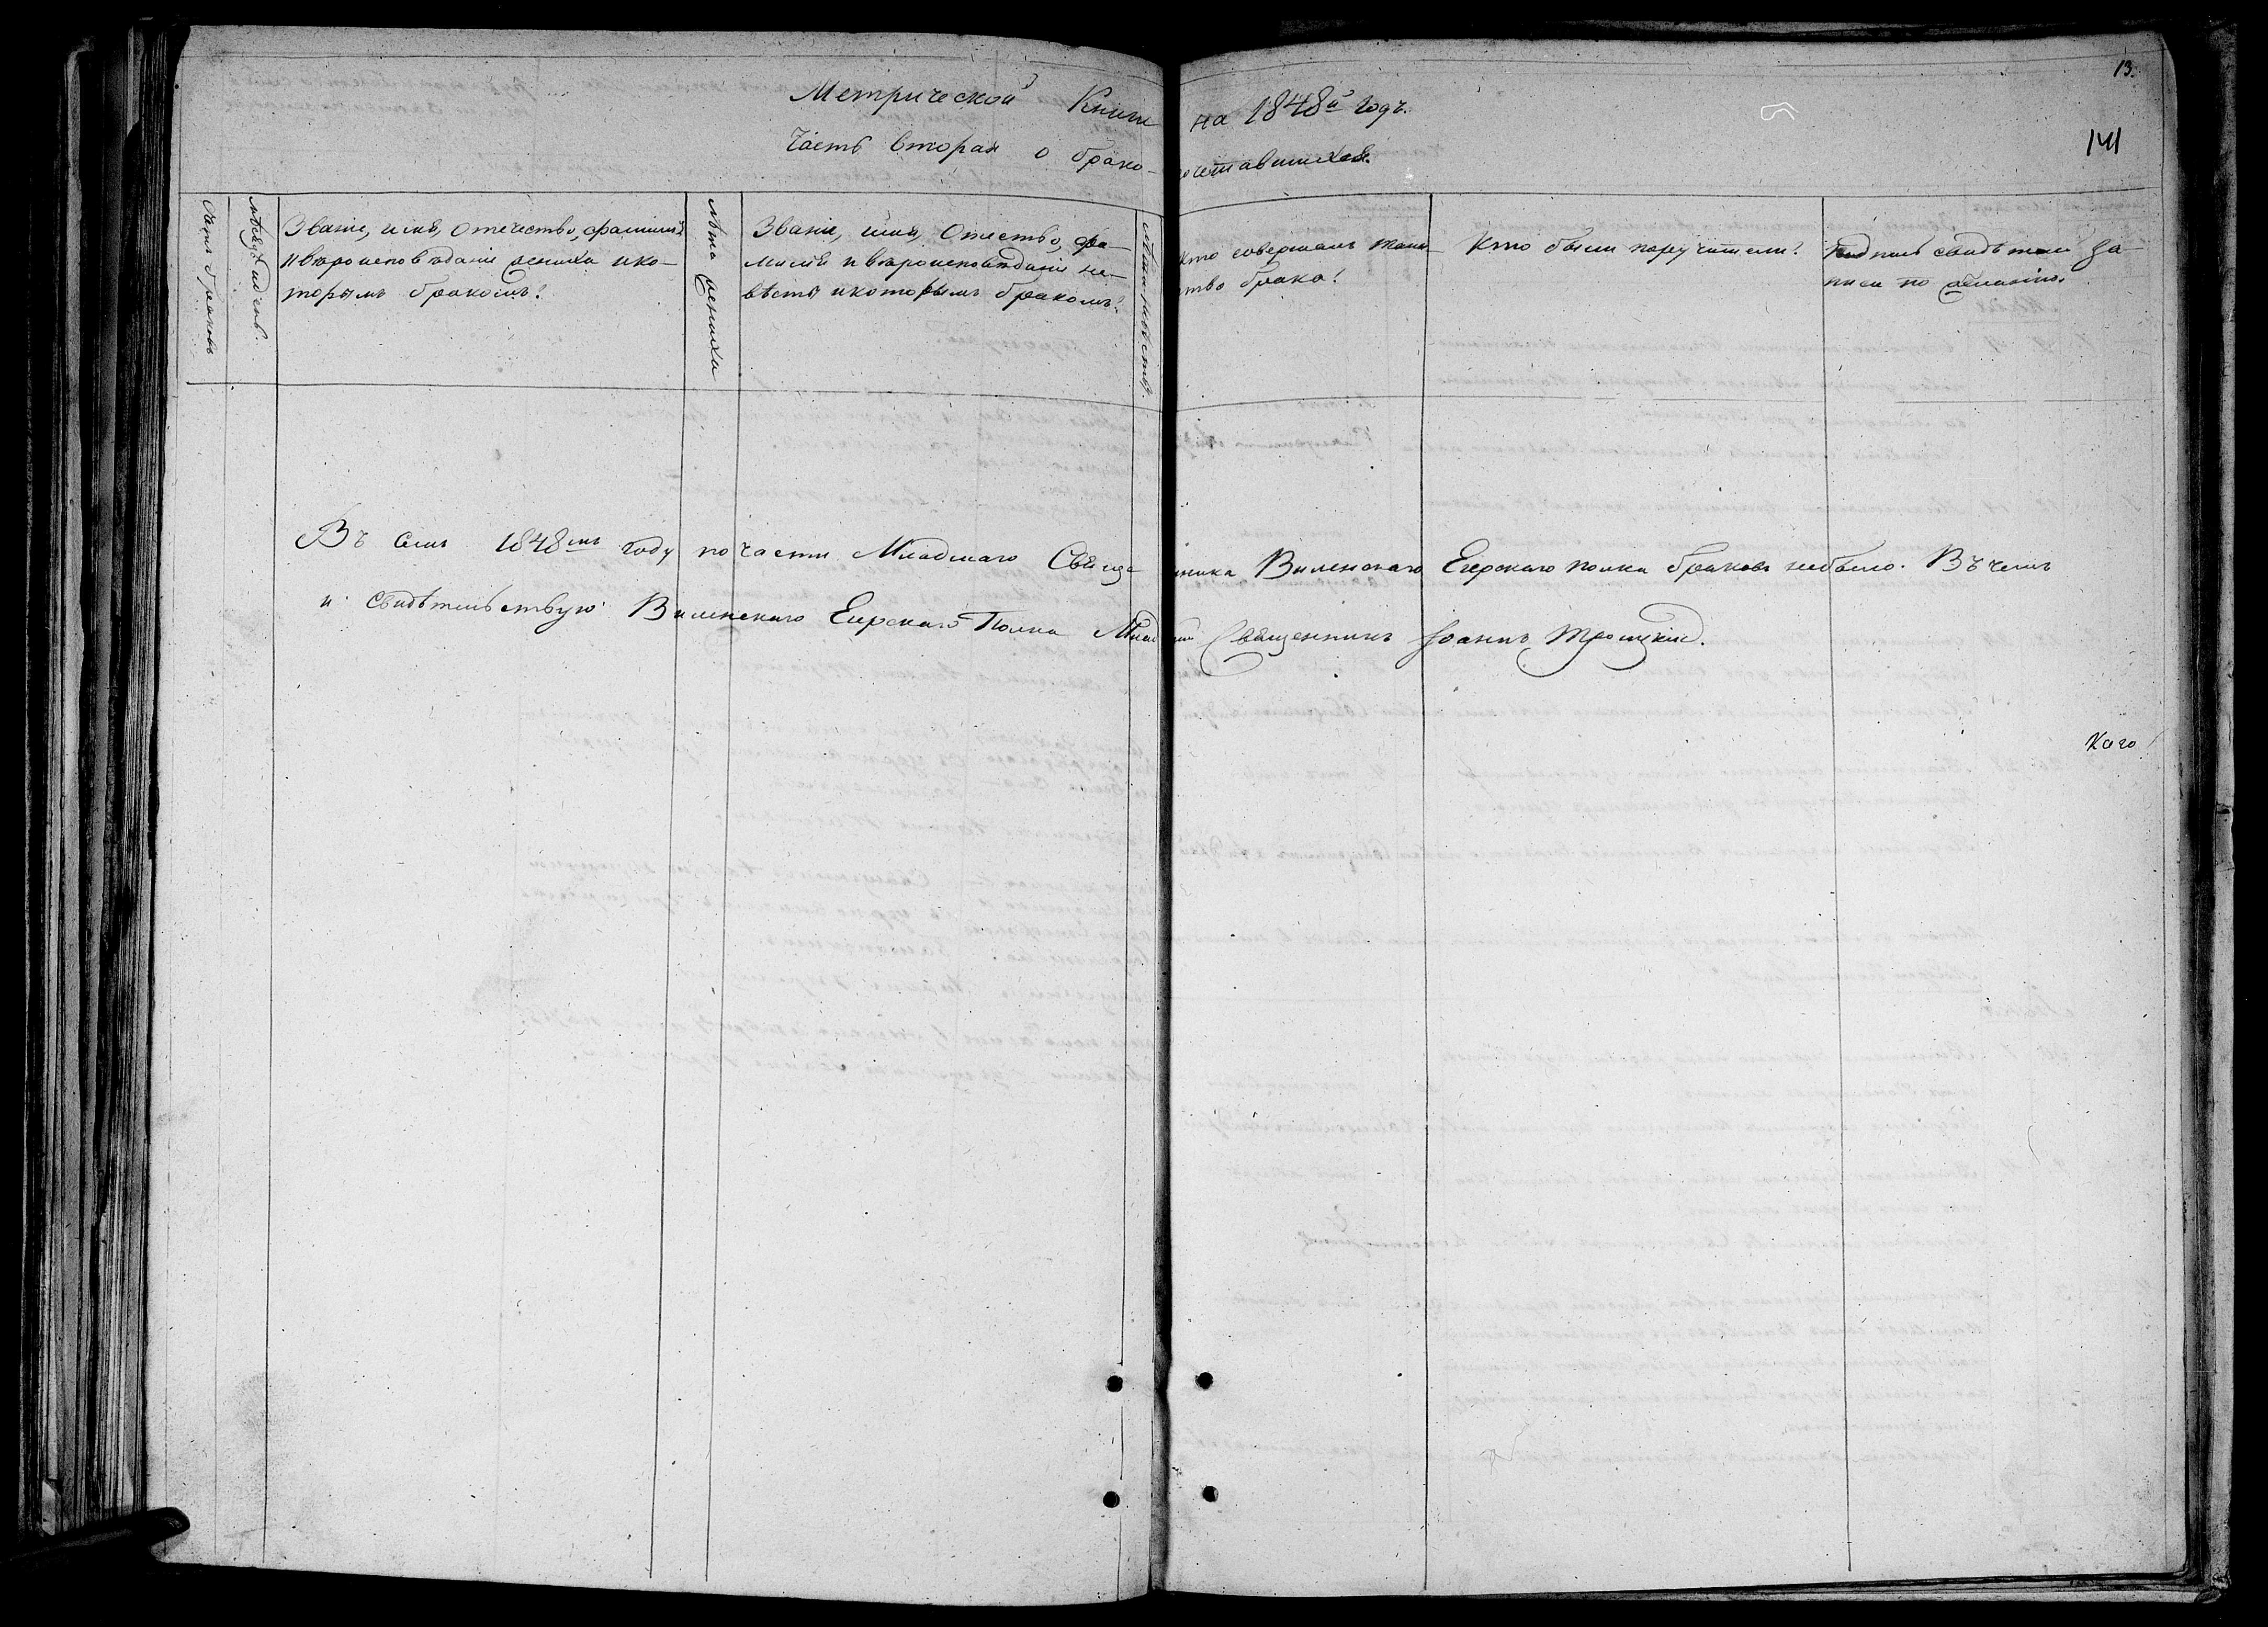 13.
141
Метрической Книги на 1848й годъ.
Часть вторая о брако-сочетавшихся.
Счетъ браковъ
Мѣсяцъ и день.
Званіе, имя, отечество, фамилія
и вѣроисповѣданіе жениха и ко-
торымъ бракомъ?
Лѣта жениха
Званіе, имя, отчество, фа-
милія и вѣроисповѣданіе не-
вѣсты и которымъ бракомъ?
Лѣта невѣсты.
Кто совершалъ таин-
ство брака?
Кто были поручители?
Подпись свидѣтелей за-
писи по желанію.
Въ семъ 1848мъ году по части Младшаго Священника Виленскаго Егерскаго полка браковъ небыло. Въ чемъ
и свидѣтельствую Виленскаго Егерскаго Полка Младшій Священникъ Іоаннъ Троицкій.
Кого